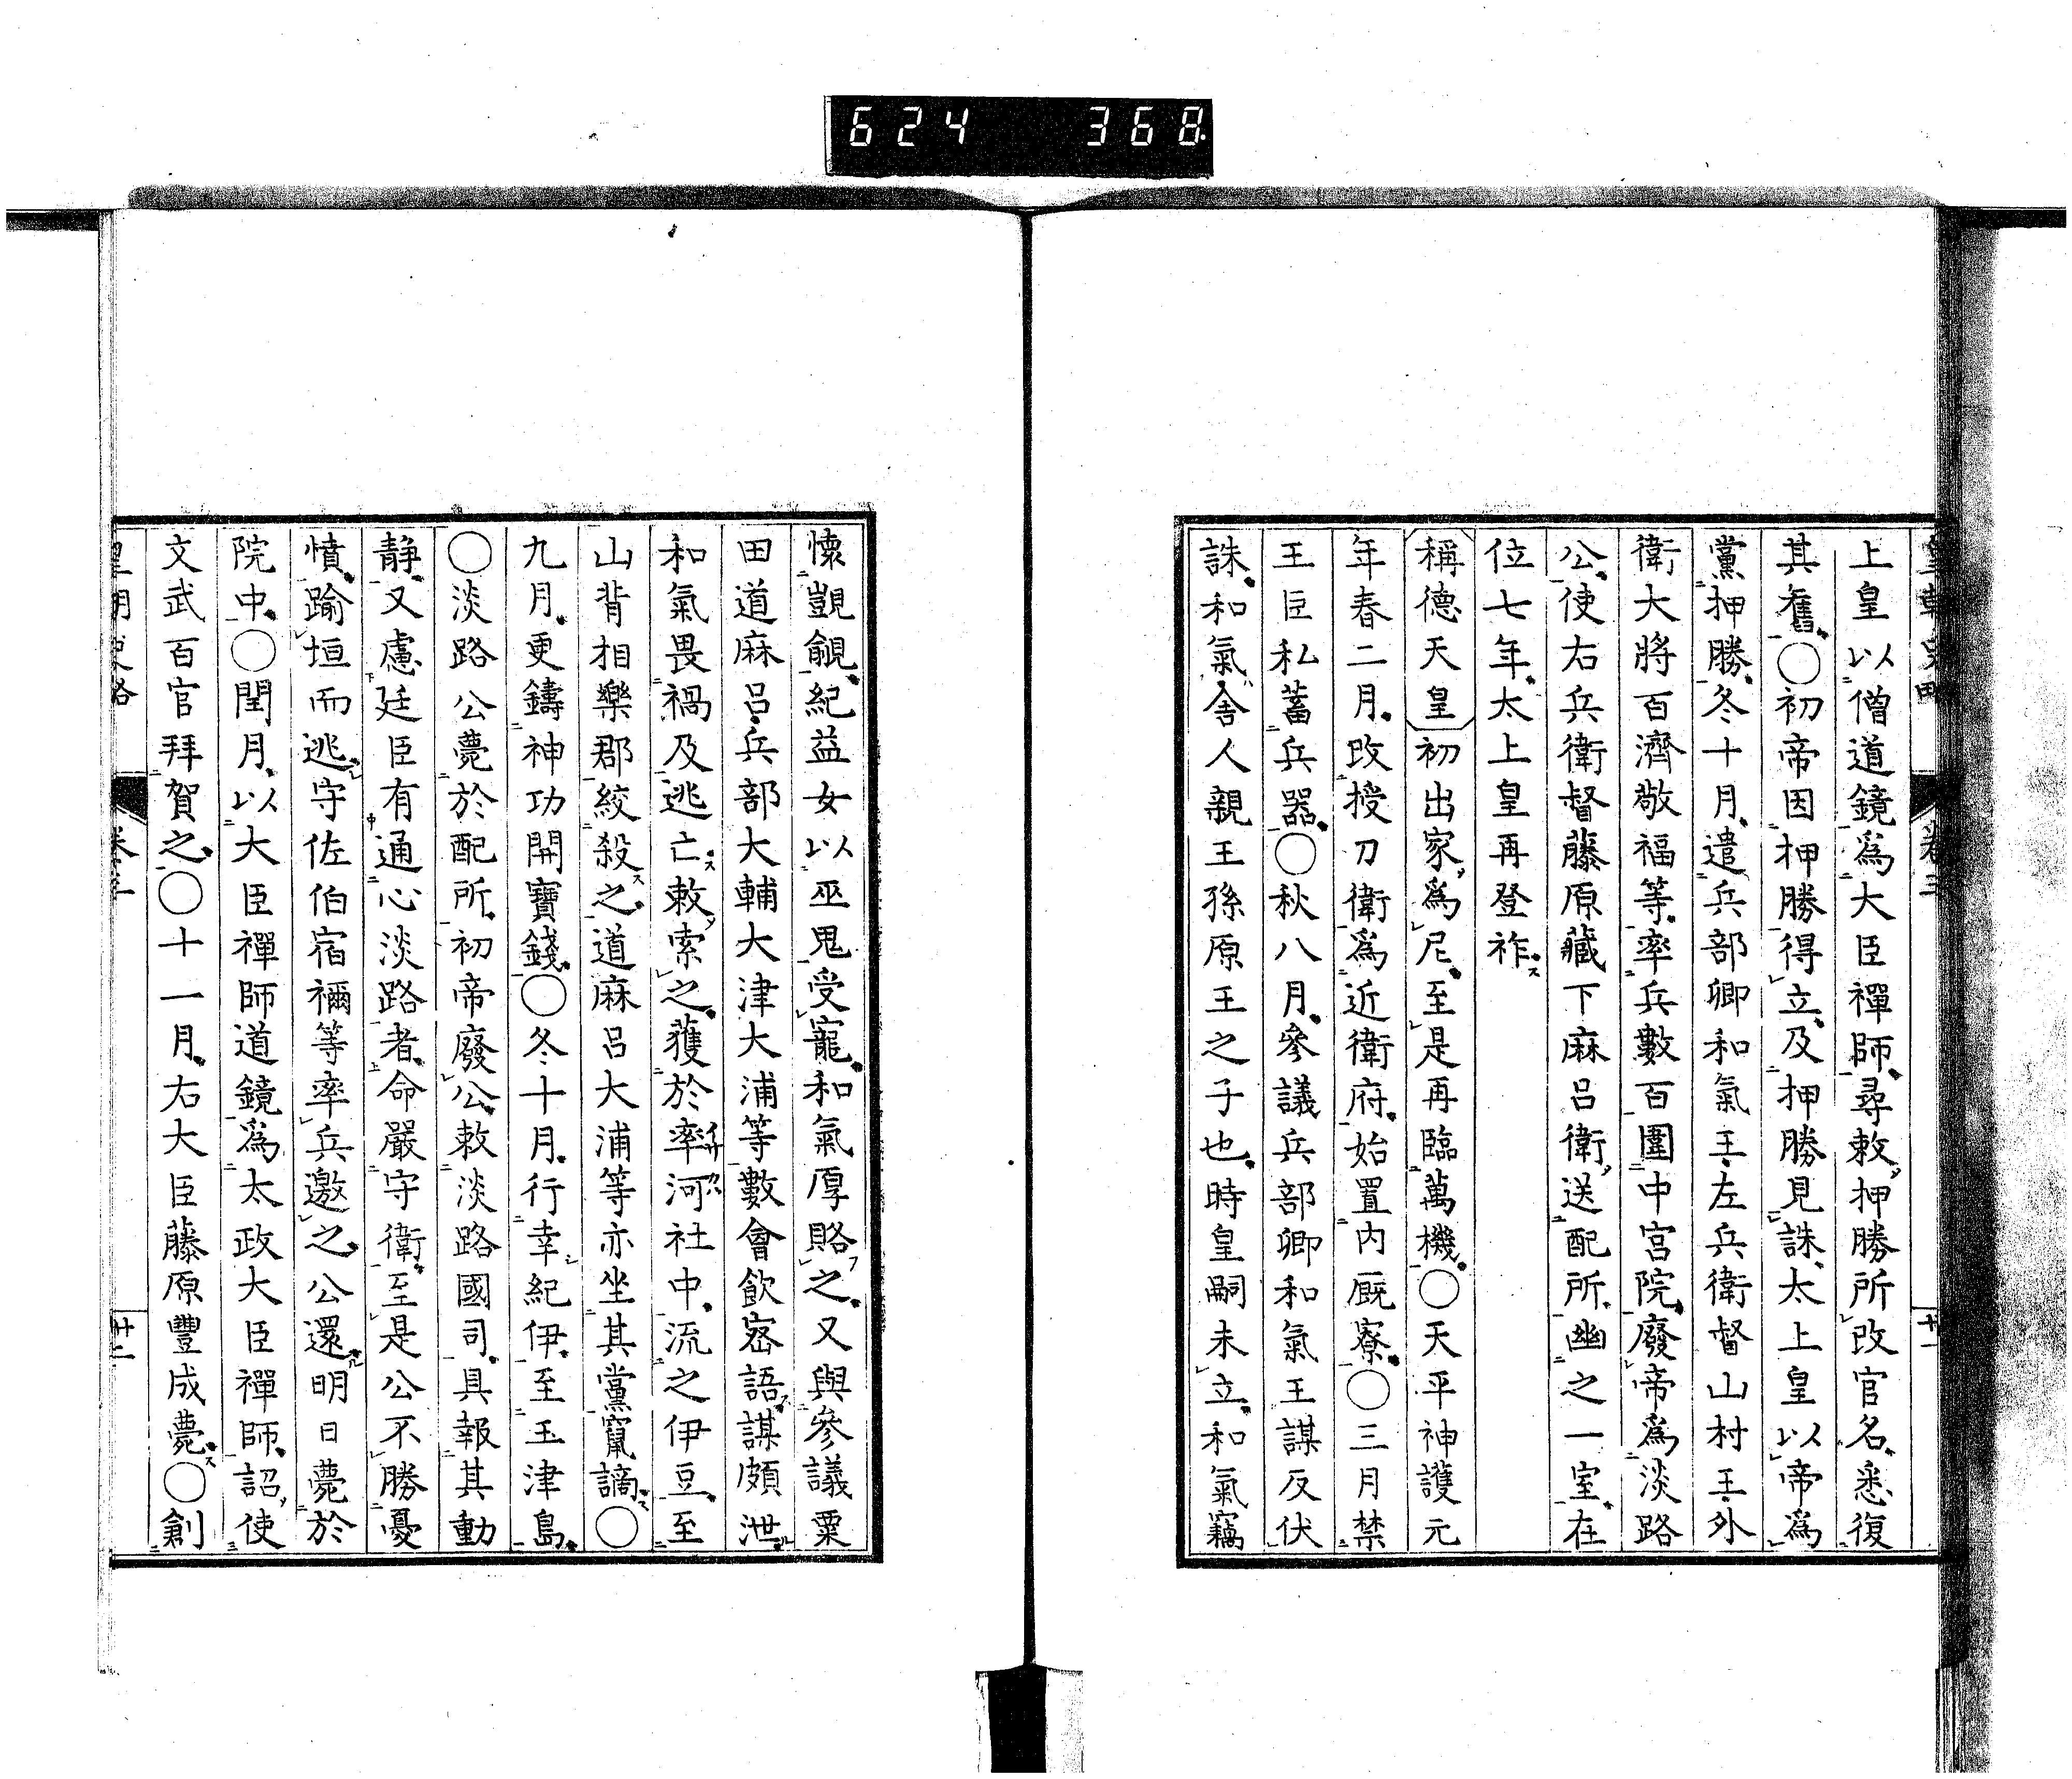 624 368
上皇以僧道鏡爲大臣禪師尋敕押勝所改官名悉復
其舊〇初帝因押勝得立及押勝見誅太上皇以帝爲
黨押勝冬十月遣兵部卿和氣王左兵衛督山村王外
衛大將百濟敬福等率兵數百圍中宮院廢帝爲淡路
公使右兵衛督藤原藏下麻呂衛送配所幽之一室在
位七年太上皇再登祚
稱德天皇初出家爲尼至是再臨萬機〇天平神護元
年春二月改授刀衛爲近衛府始置内厩寮〇三月禁
王臣私蓄兵器〇秋八月參議兵部卿和氣王謀反伏
誅和氣舍人親王孫原王之子也時皇嗣未立和氣竊
懷覬覦紀益女以巫鬼受寵和氣厚賂之又與參議粟
田道麻呂兵部大輔大津大浦等數會飲密語謀頗泄
和氣畏禍及逃亡敕索之獲於率河社中流之伊豆至
山背相樂郡絞殺之道麻呂大浦等亦坐其黨竄謫〇
九月更鑄神功開寶錢〇冬十月行幸紀伊至玉津島
〇淡路公薨於配所初帝廢公敕淡路國司具報其動
靜又慮廷臣有通心淡路者命嚴守衛至是公不勝憂
憤踰垣而逃守佐伯宿禰等率兵邀之公還明日薨於
院中〇閏月以大臣禪師道鏡爲太政大臣禪師詔使
文武百官拜賀之〇十一月右大臣藤原豐成薨〇創